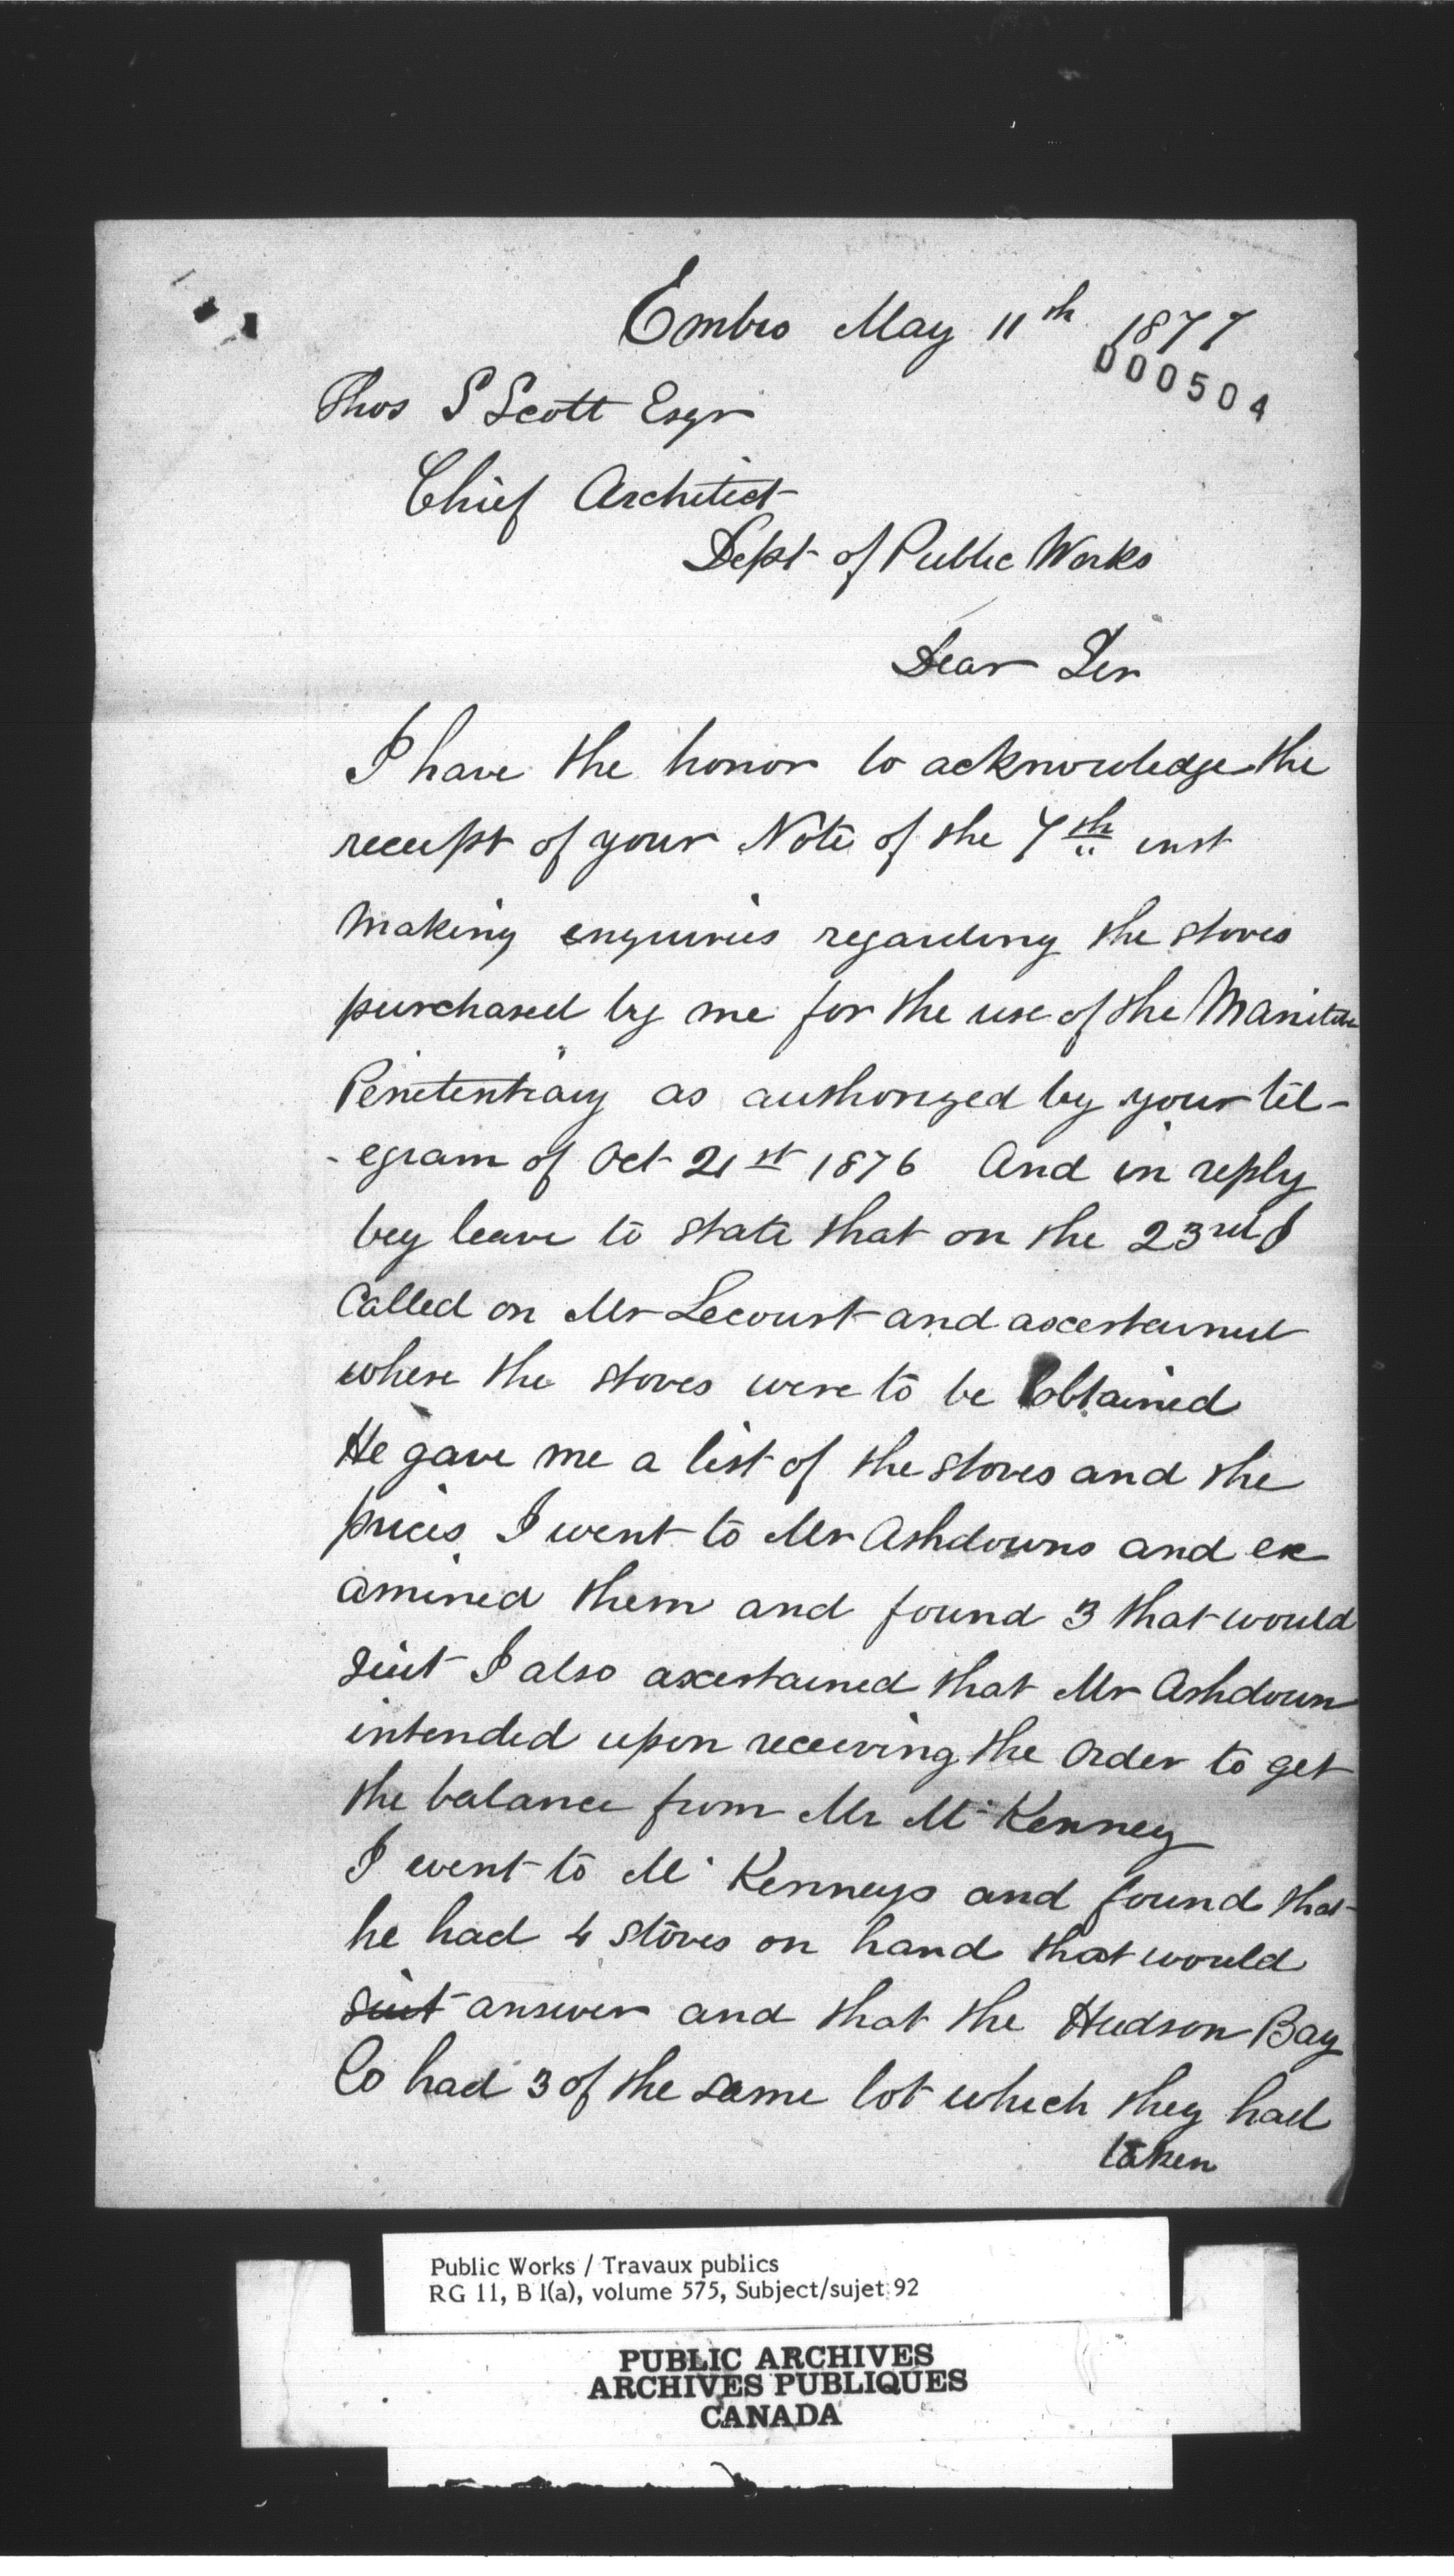 Embro May 11th 1877
000504
Thos S Scott Esqr
Chief Architect
Dept of Public Works
Dear Sir
I have the honor to acknowledge the
receipt of your Note of the 7th inst
Making enquiries regarding the stoves
purchased by me for the use of the Manitoba
Penetentiary as authorized by your tel-
-egram of Oct 21st 1876 And in reply
beg leave to state that on the 23rd I
Called on Mr Lecourt and ascertained
where the stoves were to be obtained
He gave me a list of the stoves and the
prices I went to Mr Ashdowns and ex
amined them and found 3 that would
suit I also ascertained that Mr Ashdown
intended upon receiving the Order to get
the balance from Mr McKenney
I went to McKenneys and found that
he had 4 stoves on hand that would
suit answer and that the Hudson Bay
Co had 3 of the same lot which they had
taken
Public Works / Travaux publics
RG 11, B 1(a), volume 575, Subject/sujet 92
PUBLIC ARCHIVES
ARCHIVES PUBLIQUES
CANADA